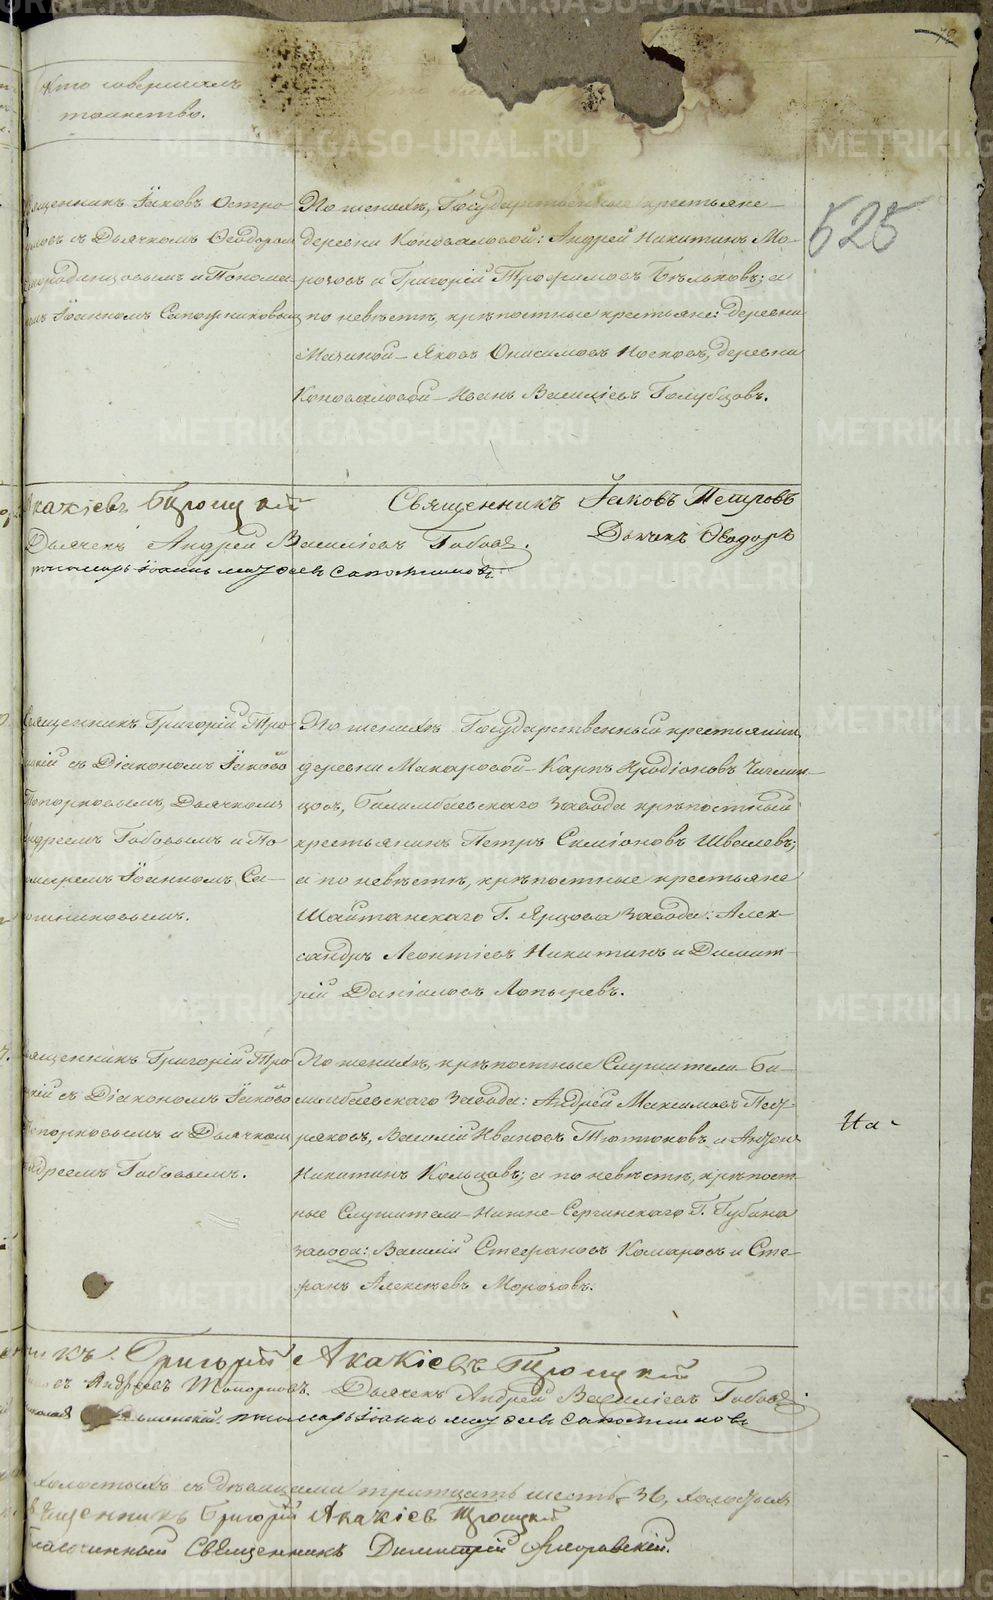 Кто совершалъ
таинство.
525
Священникъ Іаковъ Остро
съ Дьячкомъ Ѳеодоромъ
и Понома
Іоанномъ Сапожниковым
По женихѣ, Государственные крестьяне
деревни Коноваловой: Андрей Никитинъ Мо-
розовъ и Григорій Трофимовъ Бѣльковъ; а
по невѣстѣ, крѣпостные крестьяне: деревни
Мачиной – Яковъ Онисимовъ Носковъ, деревни
Коноваловой – Иванъ Василіевъ Голубцовъ.
Акакіевъ Троицкій
Священникъ Іаковъ Петровъ
Дьячекъ Андрей Василіевъ Бабовъ.
Дьячекъ Ѳеодоръ
пономарь Іоаннъ Матѳеевъ Сапожниковъ
Священникъ Григорій Тро
ицкій съ Діакономъ Іаково
Топорковымъ, Дьячкомъ
Андреемъ Бабовымъ и По
номаремъ Іоанномъ Са-
пожниковымъ.
По женихѣ Государственный крестьянин
деревни Макаровой – Карпъ Иродіоновъ
цовъ, Билимбаевскаго завода крѣпостный
крестьянинъ Петръ Симіоновъ Швалевъ;
а по невѣстѣ, крѣпостные крестьяне
Шайтанскаго Г. Ярцова завода: Алек-
сандръ Леонтіевъ Никитинъ и Димит-
рій Даніиловъ Лопыревъ.
Священникъ Григорій Тро
ицкій съ Діакономъ Іаково
Топорковымъ и Дьячком
Андреемъ Бабовымъ.
По женихѣ, крѣпостные Служители Би-
лимбаевскаго завода: Андрей Максимовъ
ряковъ, Василій Ивановъ Тютюковъ и Антон
Никитинъ Кольцовъ; а по невѣстѣ, крѣпост-
ные Служители Нижне-Сергинскаго Г. Губина
завода: Василій Стефановъ Комаровъ и Сте-
фанъ Алексѣевъ Морозовъ.
На-
никъ Григорій Акакіевъ Троицкій
Андреевъ Топорковъ. Дьячекъ Андрей Василіевъ Бабовъ
пономарь Іоаннъ Матѳеевъ Сапожниковъ
холостыхъ съ дѣвицами тридцать шесть 36, холостыхъ
Священникъ Григорій Акакіевъ Троицкій
Благочинный Священникъ Димитрій
METRIKI.GASO-URAL.RU